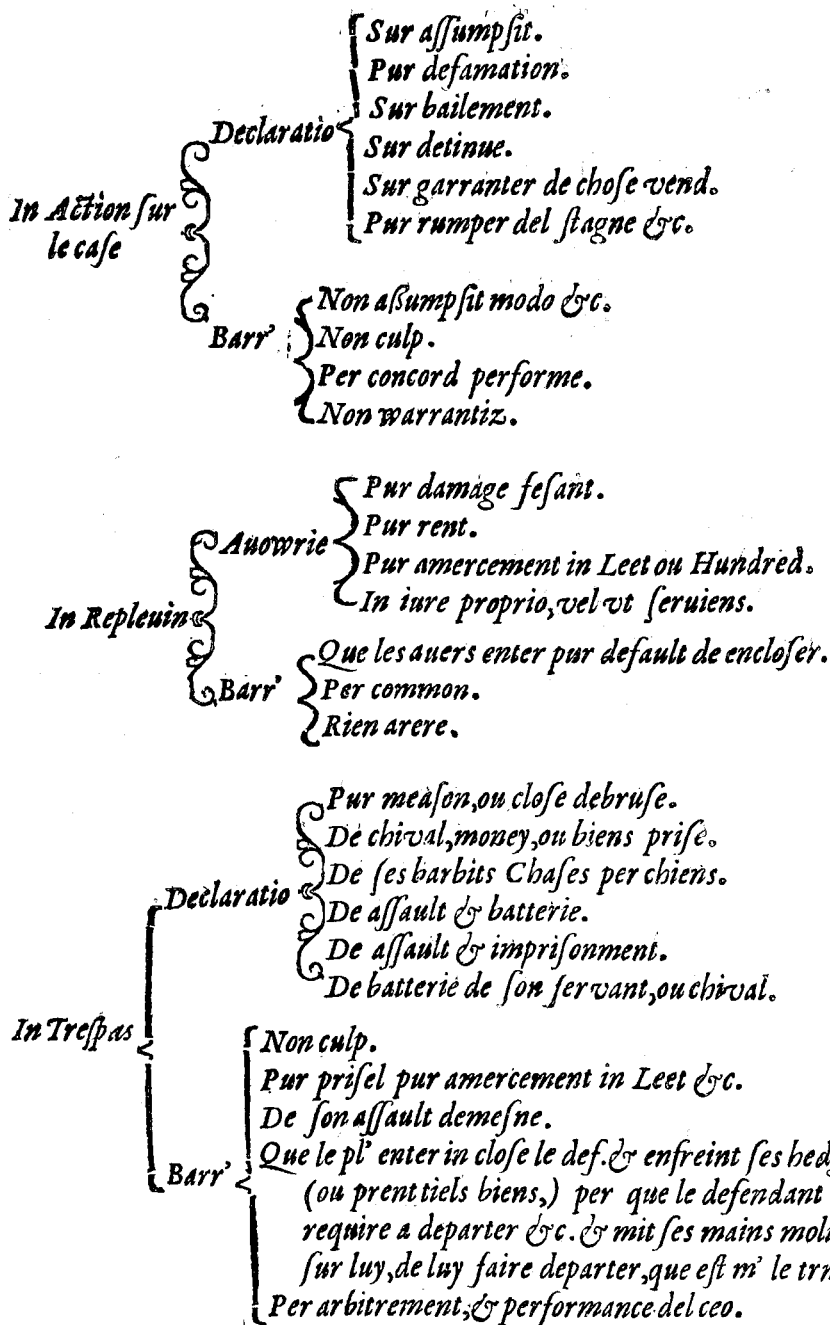 In Action ſur
le caſe
Declaratio
Sur aſſumpſit.
Pur defamation.
Sur bailement.
Sur detinue.
Sur garranter de choſe vend.
Pur rumper del ſtagne &c.
Barr'
Non aſſumpſit modo &c.
Non culp.
Per concord performe.
Non warrantiz.
In Repleuin
Auowrie
Pur damage feſant.
Pur rent.
Pur amercement in Leet ou Hundred.
In iure proprio, vel vt ſeruiens.
Barr'
Que les auers enter pur default de encloſer.
Per common.
Rien arere.
In Treſpas
Declaratio
Pur meaſon, ou cloſe debruſe.
De chival, money, ou biens priſe.
De ſes barbits Chaſes per chiens.
De aſſault & batterie.
De aſſault & impriſonment.
De batterie de ſon ſervant, ou chival.
Barr'
Non culp.
Pur priſel pur amercement in Leet &c.
De ſon aſſault demeſne.
Que le pl' enter in cloſe le def. & enfreint ſes
(ou prent tiels biens,) per que le defendant
require a departer &c. & mit ſes mains
ſur luy, de luy faire departer, que eſt m' le
Per arbitrement, & performance del ceo.